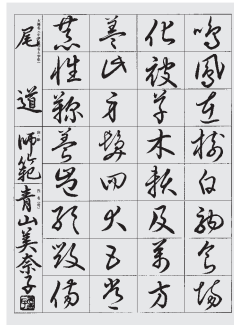 鳴鳳在樹白駒食場
化被草木頼及萬方
蓋此身髮四大五常
恭惟鞠養豈敢毀傷
尾道 師範 青山美奈子